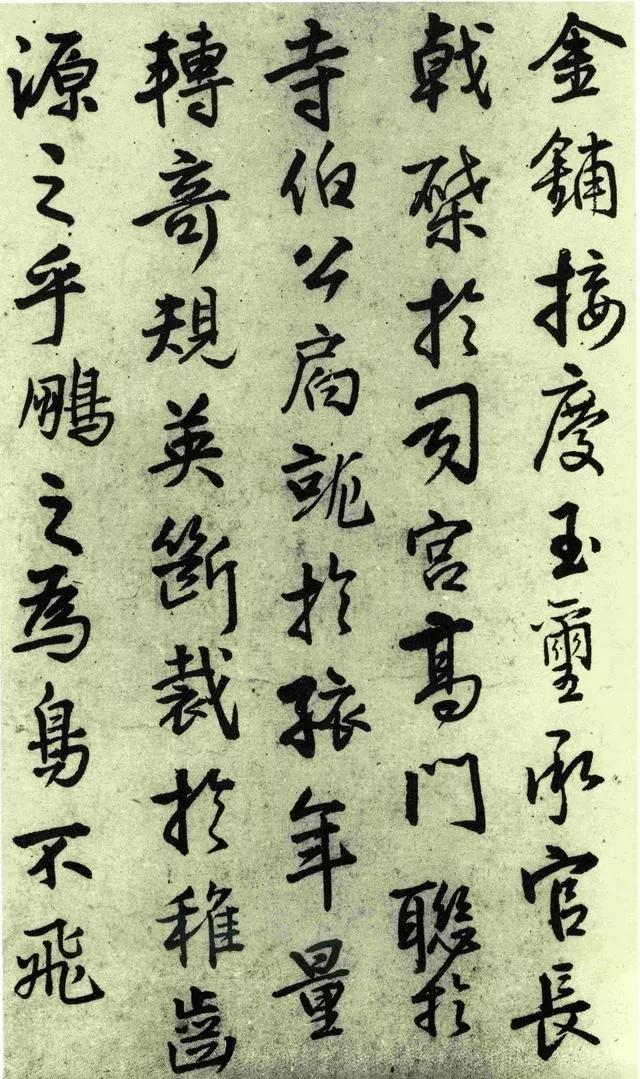 金鋪接慶玉璽承官長
戟磔於司宮高門聯於
寺伯公於孩年量
轉奇規英斷裁於稚齒
源之乎鵬之為鳥不飛